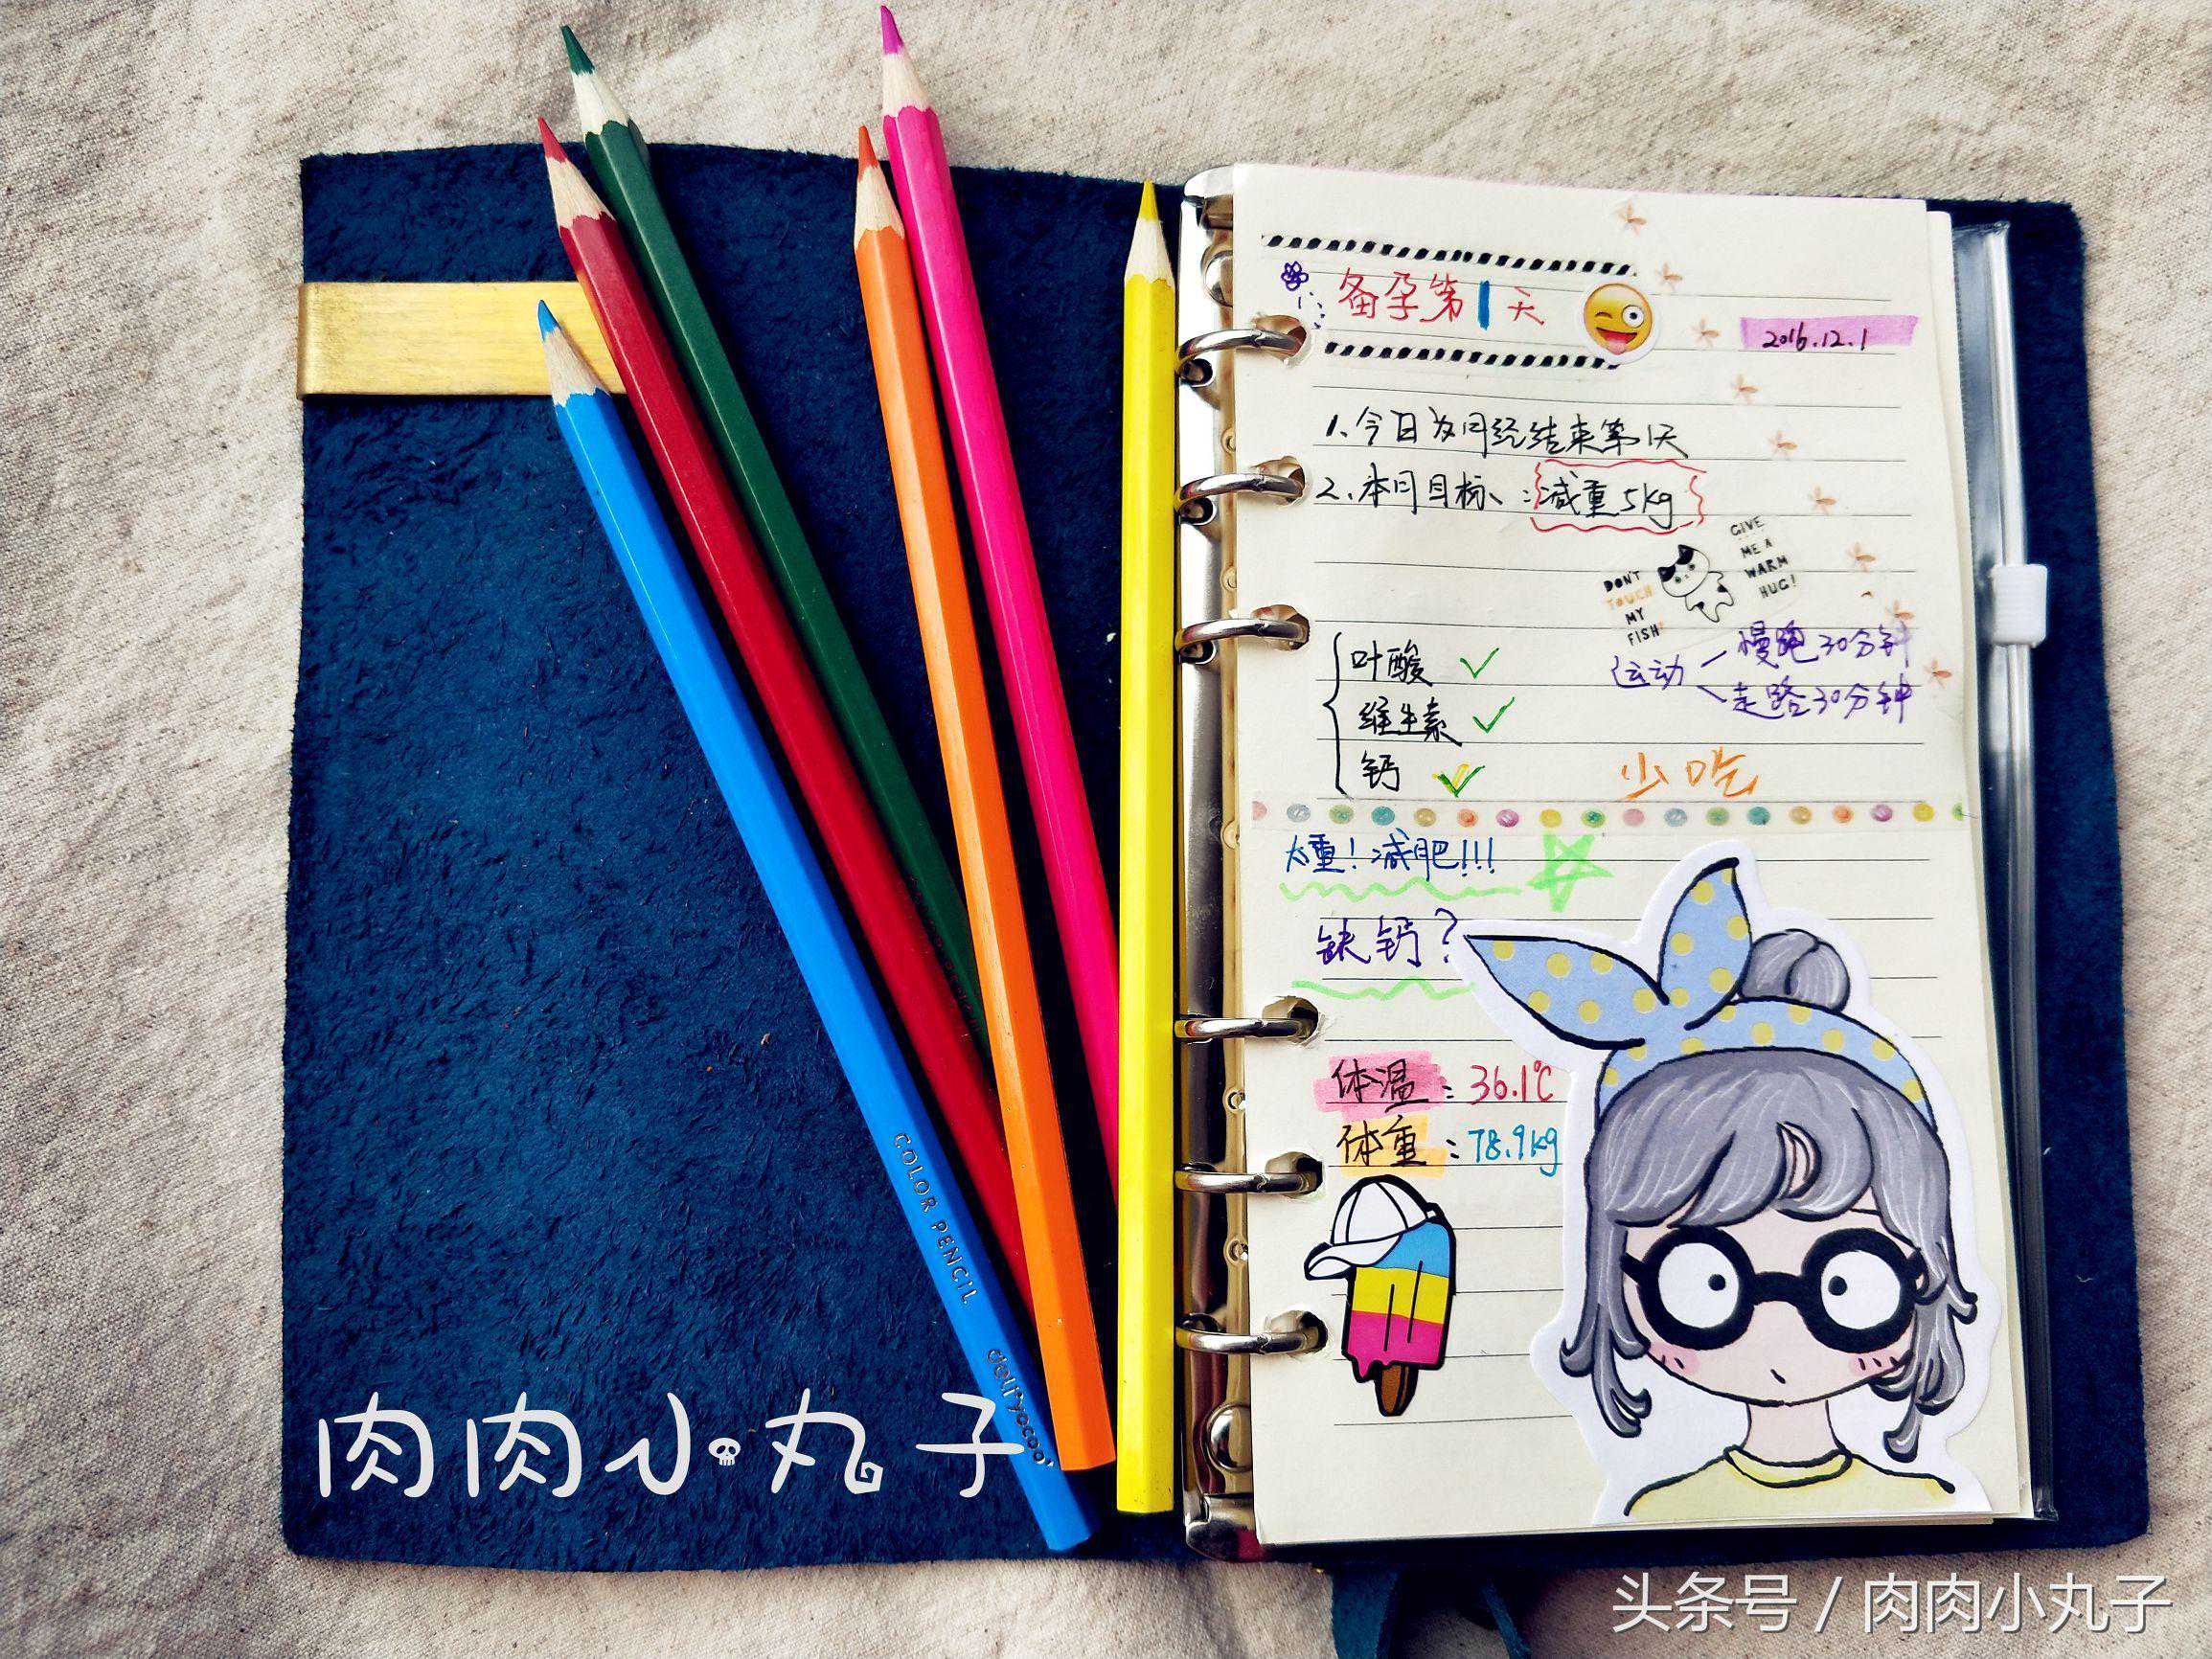 备孕第1天
2016.12.1
1、今日为月经结束第1天
2、本月目标、:减重5kg
GIVE
ME A
WARM
HUG!
DON'T
TOUCH
MY
FISH!
叶酸 ✓
维生素 ✓
钙 ✓
运动
慢跑30分钟
走路30分钟
少吃
太重!减肥!!!
缺钙?
体温:36.1℃
体重:78.9kg
COLOR PENCIL
deli'yocoo'
肉肉小丸子
头条号 / 肉肉小丸子